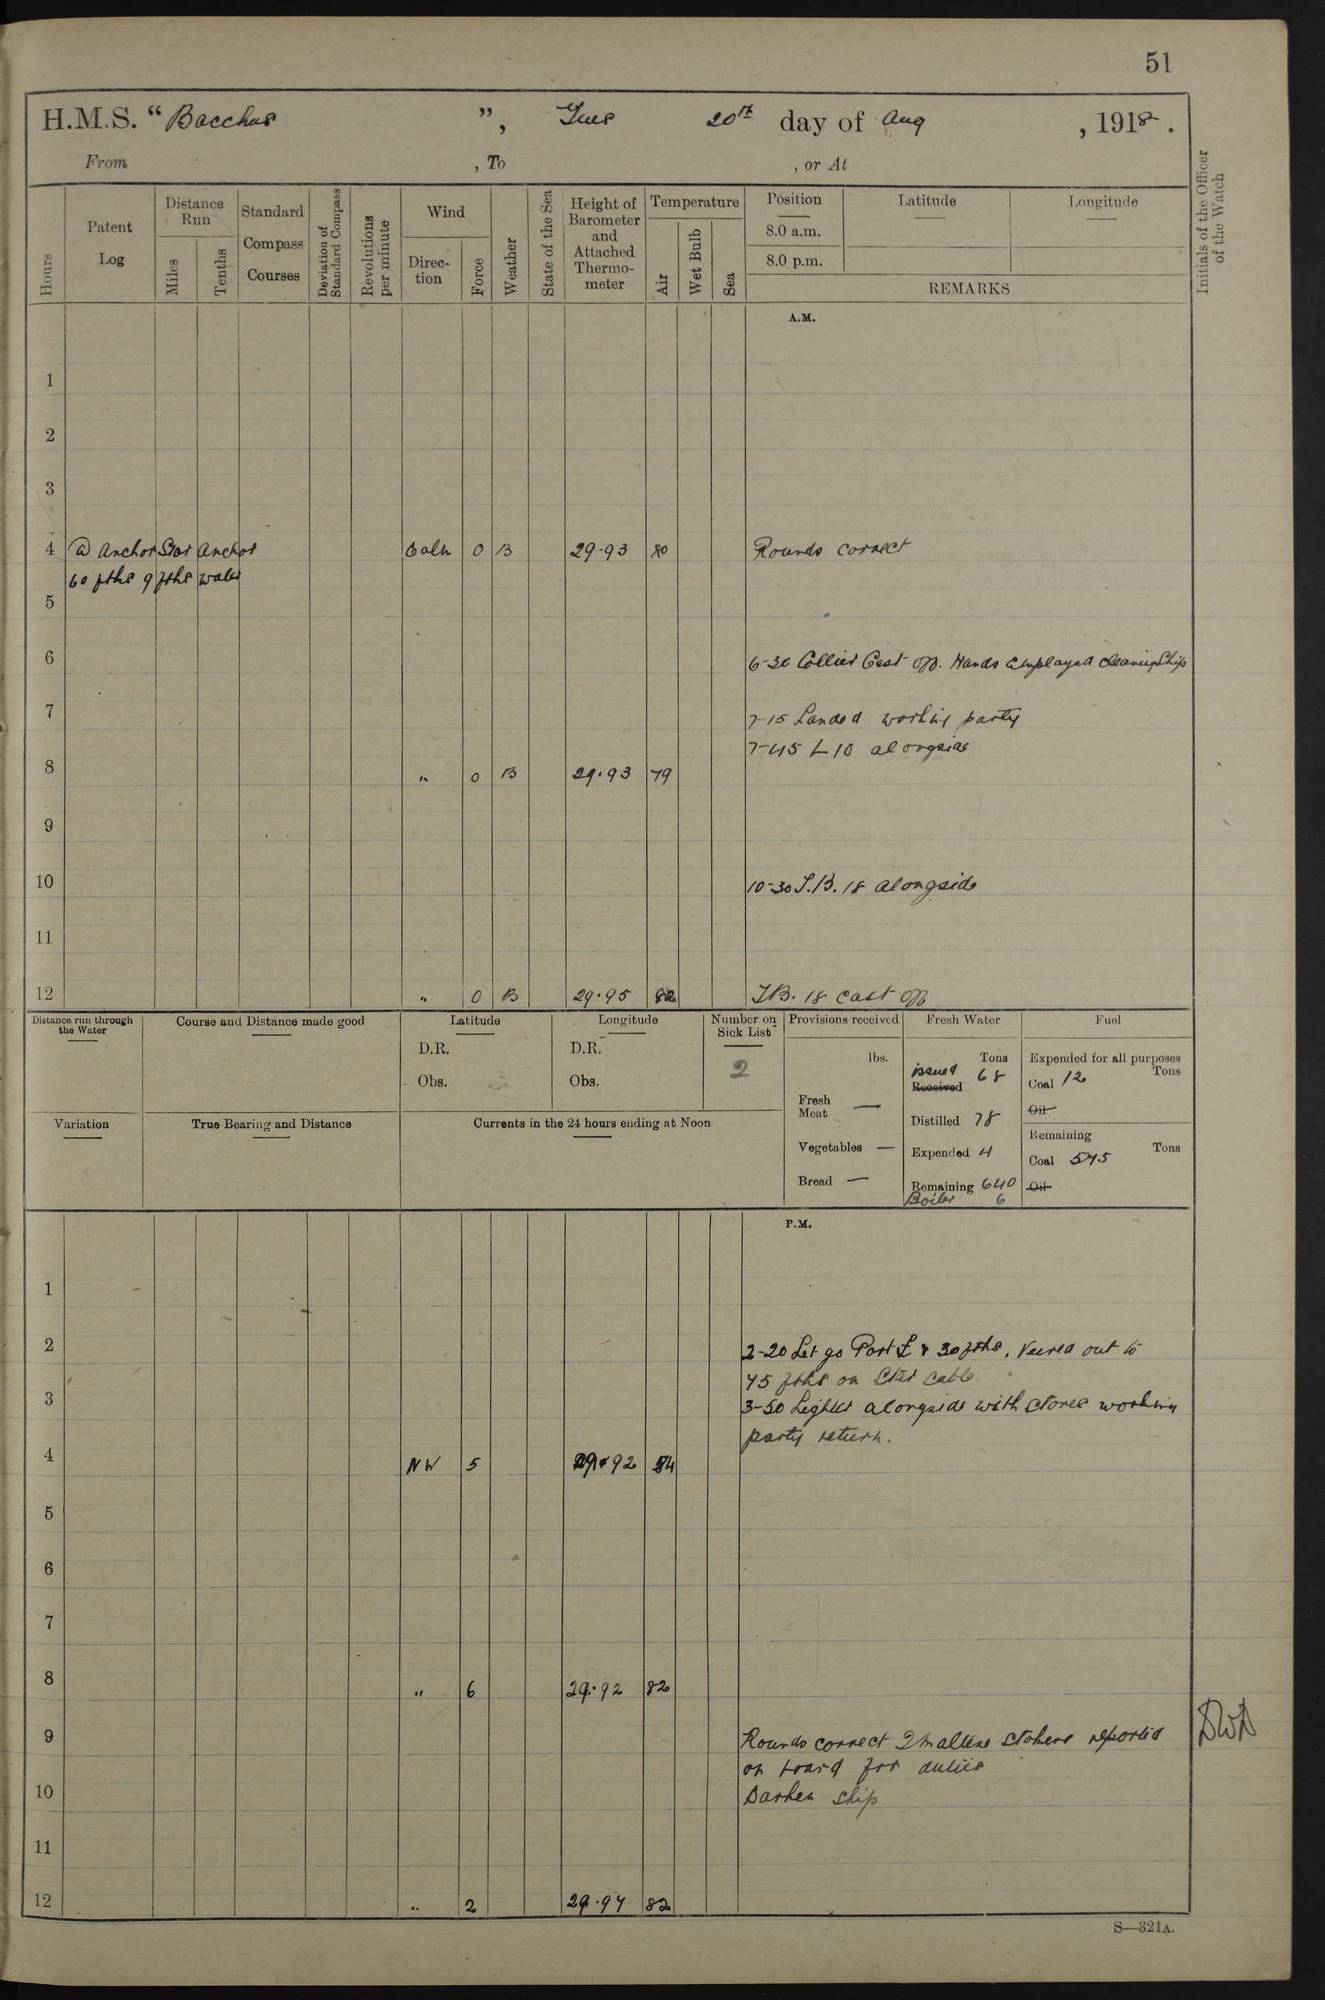 51
H.M.S. “ Bacchus ”, Tues 20th day of Aug , 1918 .
From , To , or At
Hours
Patent Log
Distance Run
Miles
Tenths
Standard Compass Courses
Deviation of Standard Compass
Revolutions per minute
Wind
Direc-tion
Force
Weather
State of the Sea
Height of Barometer and Attached Thermo-meter
Temperature
Air
Wet Bulb
Sea
Position
8.0 a.m.
8.0 p.m.
Latitude
Longitude
REMARKS
Initials of the Officer of the Watch
A.M.
1
2
3
4 @ anchor Star anchor Calm 0 B 29.93 80 Rounds correct
60 fths 9 fths water
5
6 6-30 Collier Cast off. Hands employed cleaning Ship
7 7-15 Landed working party
7-45 L 10 alongside
8 " 0 B 29.93 79
9
10 10-30 T.B. 18 alongside
11
12 " 0 B 29.95 82 T.B. 18 cast off
Distance run through the Water
Course and Distance made good
Latitude
D.R.
Obs.
Longitude
D.R.
Obs.
Number on Sick List
2
Provisions received
lbs.
Fresh Meat —
Vegetables —
Bread —
Fresh Water
Tons
issued
Received 68
Distilled 78
Expended 4
Remaining 640
Boiler 6
Fuel
Expended for all purposes
Tons
Coal 12
Oil
Remaining
Tons
Coal 545
Oil
Variation
True Bearing and Distance
Currents in the 24 hours ending at Noon
P.M.
1
2 2-20 Let go Port & 30 fths. Veered out to
45 fths on Star cable
3 3-50 Lighter alongside with stores working
party return.
4 NW 5 29.92 84
5
6
7
8 " 6 29.92 82
9 Rounds correct 2 maltese stokers reported
on board for duties
10 Darken ship
11
12 " 2 29.94 82
DWD
S—321A.